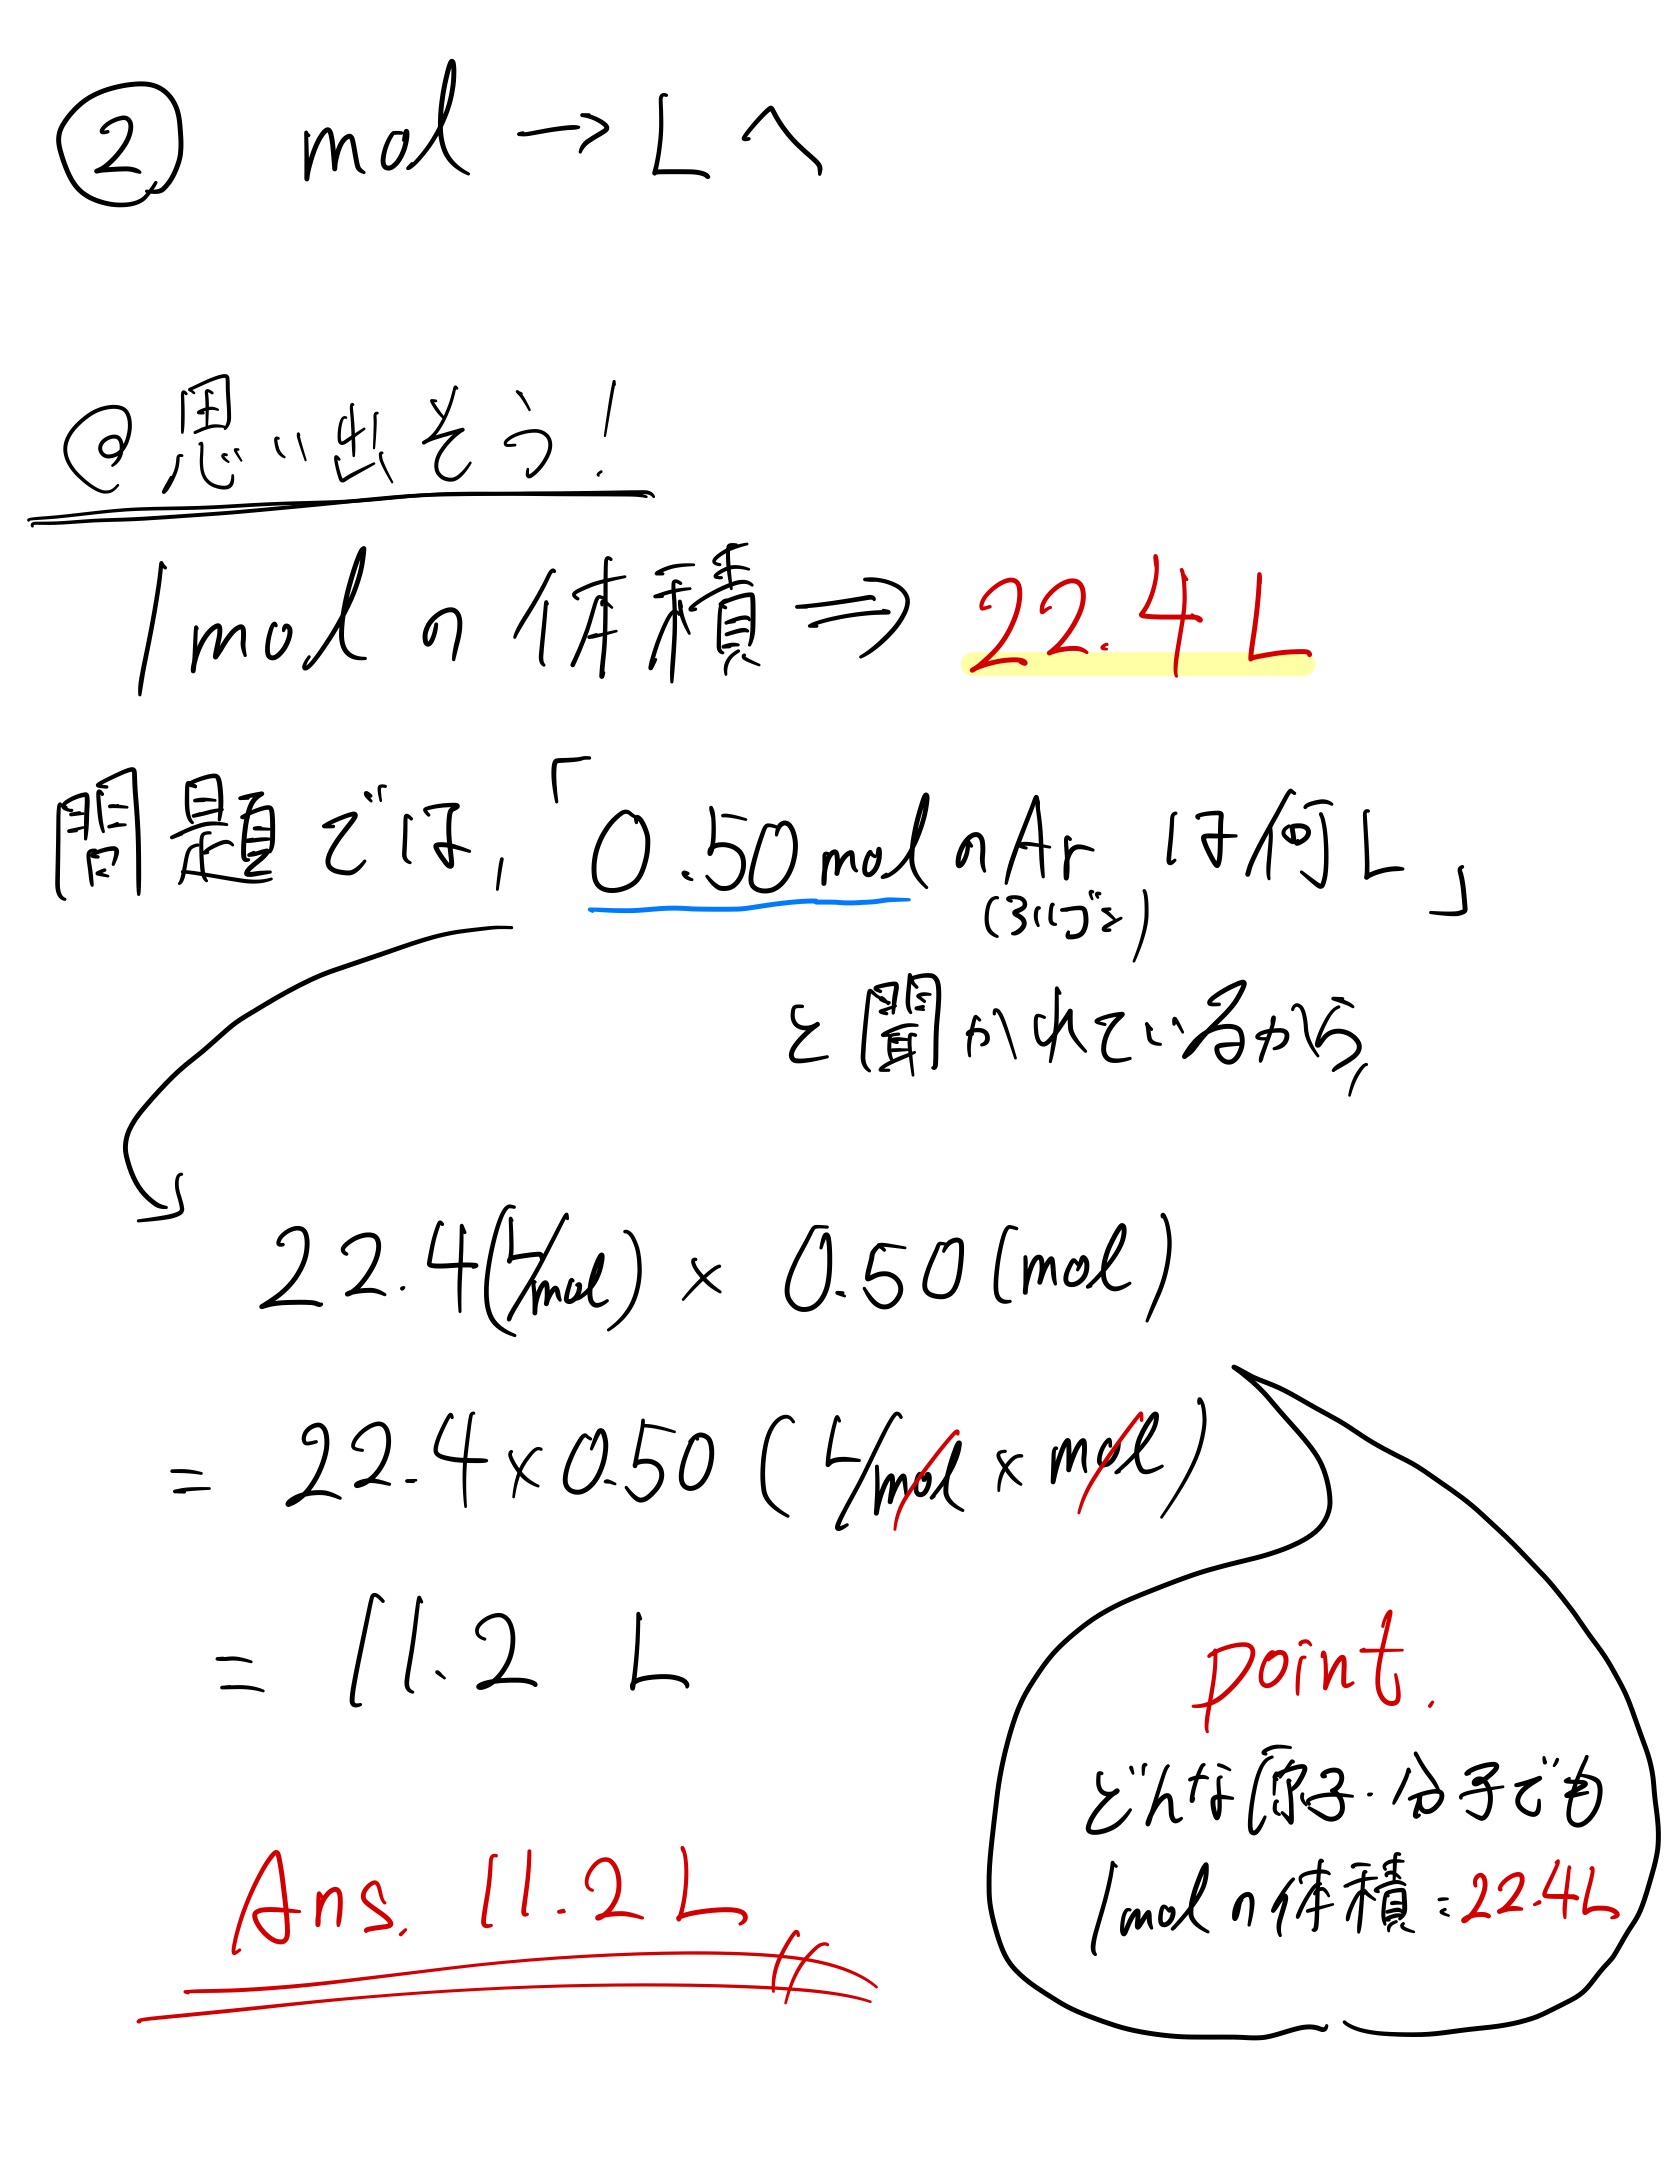 ② mol → Lへ
@思い出そう!
1molの体積 ⇒ 22.4L
問題では,「0.50molのArは何L」
(アルゴン)
と聞かれているから,
22.4(L/mol) × 0.50(mol)
= 22.4×0.50 (L/mol × mol)
= 11.2 L
Point.
どんな原子・分子でも
1molの体積:22.4L
Ans. 11.2L